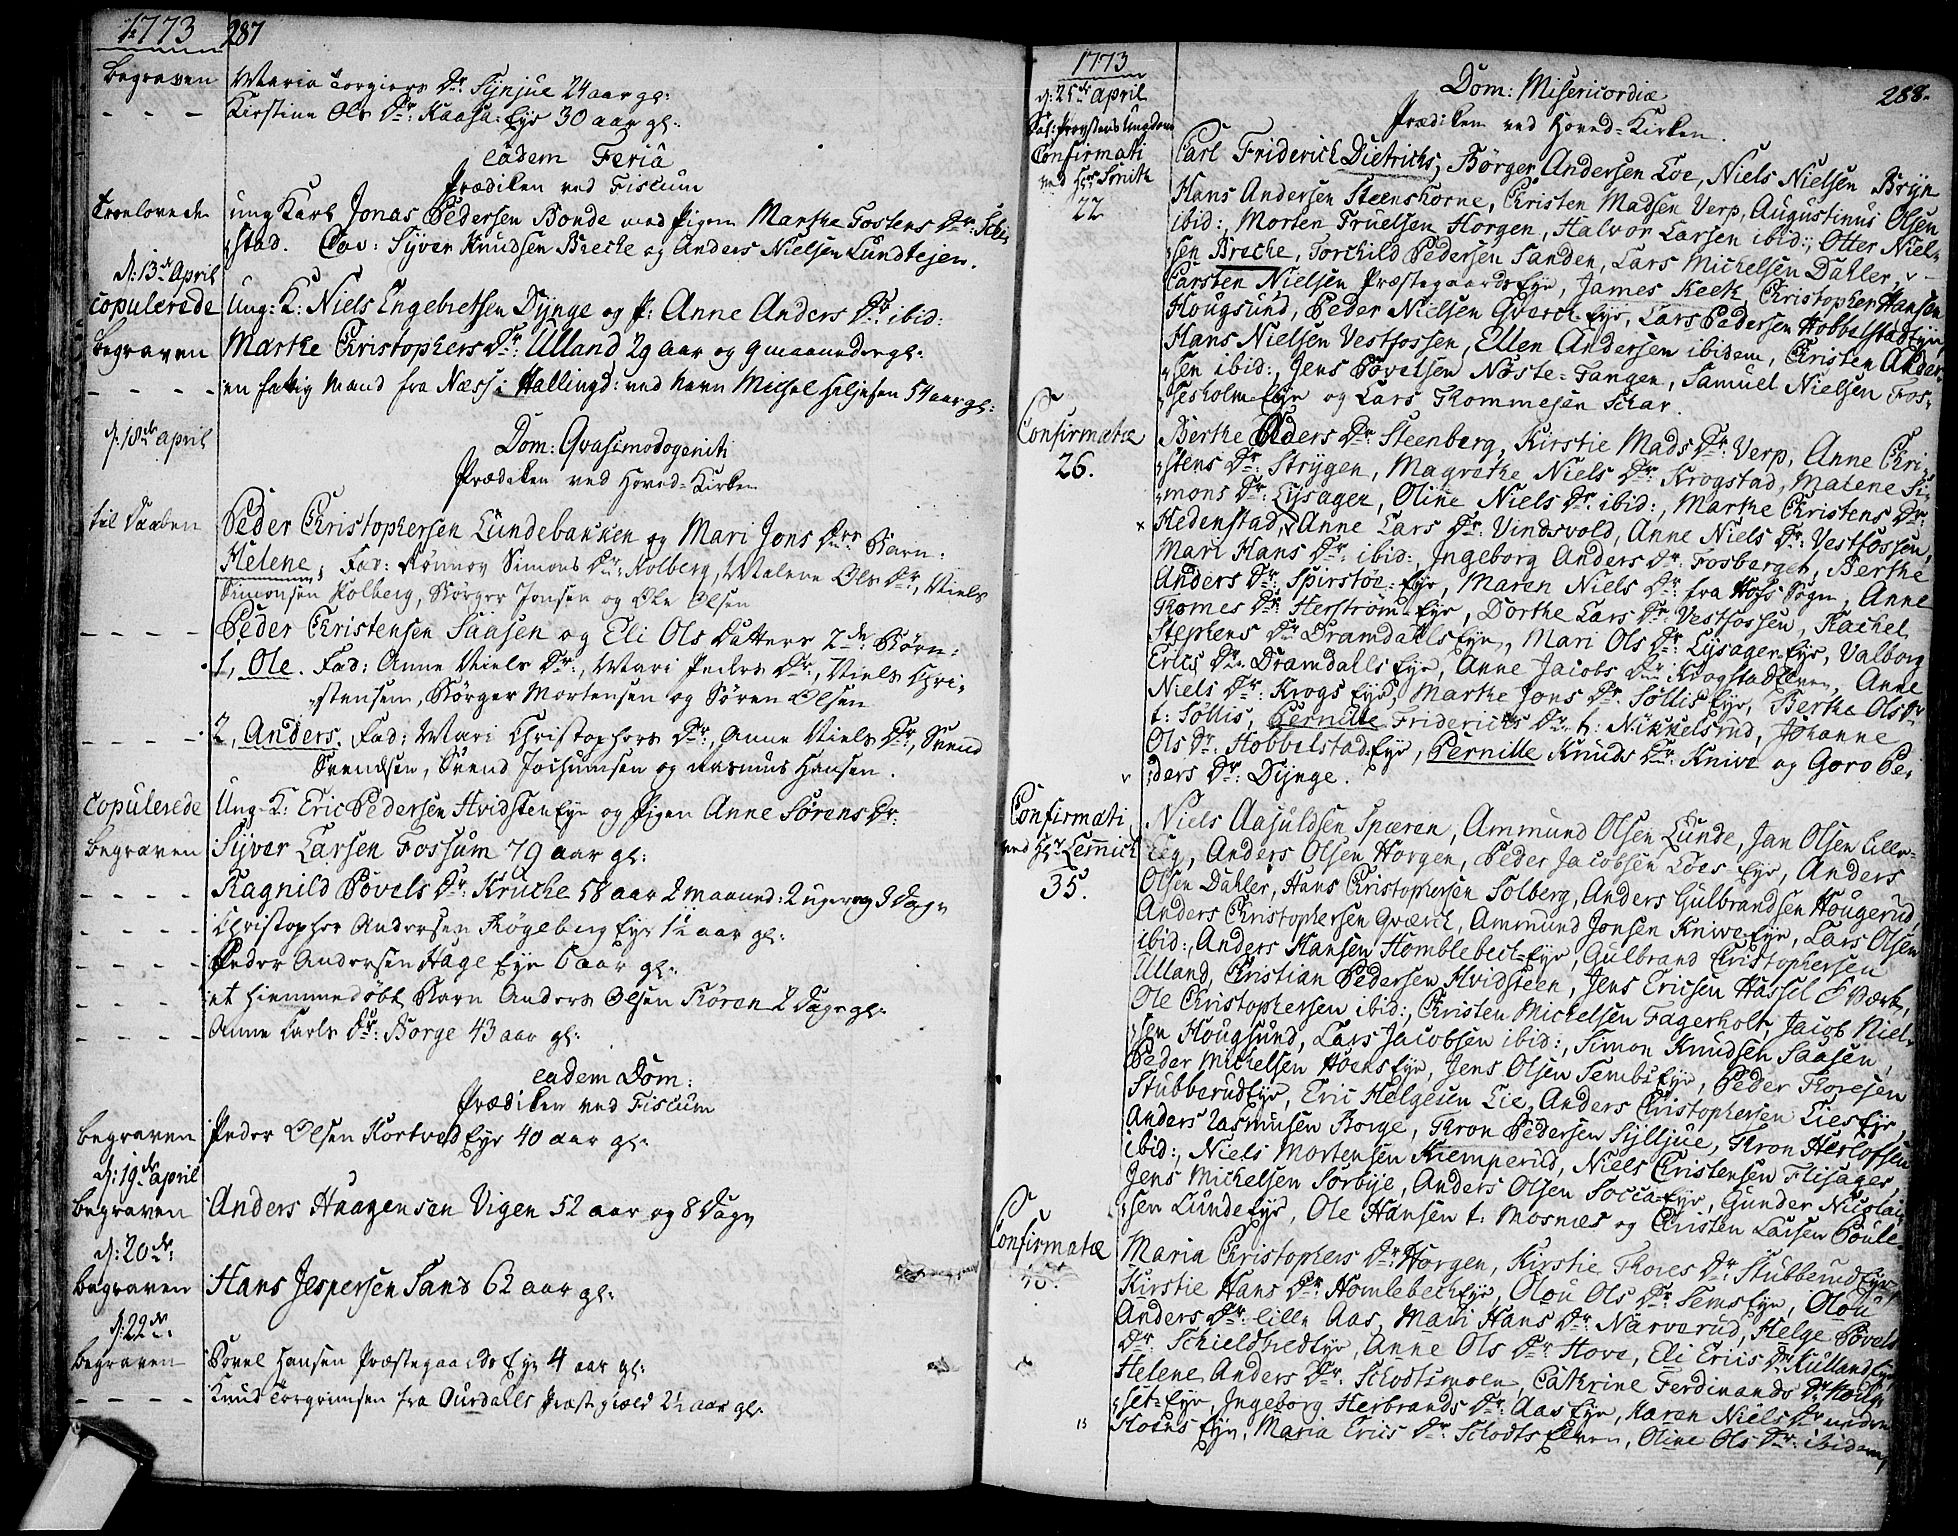 1773 287
begraven Maria Torgiers Dr: Synjue 24 aar gl:
- - - Kirstine Ols Dr: Kaasa-Eye 30 aar gl:
eadem Feria
Prædiken ved Fiscum
Troelovede ung Karl Jonas Pedersen Bonde med Pigen Marthe Tostens Dr: Schi-
stad. Cav: Syver Knudsen Breche og Anders Nielsen Lundtejen.
d: 13de April
Copulerede Ung: K: Niels Engebretsen Dynge og P: Anne Anders Dr: ibid:
begraven Marthe Christophers Dr: Ulland 29 aar og 9 maaneder gl:
- - - - en fattig Mand fra Næss i Hallingd: ved navn Michel Heljesen 54 aar gl:
d: 18de April
Dom: Qvasimodogeniti
Prædiken ved Hoved-Kirken
til Daaben Peder Christophersen Lundebakken og Mari Jons Dtrs Barn:
Helene; Fad: Rønnov Simons Dr: Kolberg, Malene Ols Dr, Niels
Simonsen Kolberg, Børger Jonsen og Ole Olsen
- - - - Peder Christensen Saasen og Eli Ols Datters 2de: Børn:
1, Ole. Fad: Anne Niels Dr:, Mari Peders Dr:, Niels Chri-
stensen, Børger Mortensen og Søren Olsen
- - - - 2, Anders. Fad: Mari Christophers Dr:, Anne Niels Dr:, Svend
Svendsen, Svend Jochumsen og Rasmus Hansen.
Copulerede Ung-K: Eric Pedersen Hvidsten Eye og Pigen Anne Sørens Dr:
begraven Syver Larsen Fossum 79 aar gl:
- - - - Ragnild Povels Dr: Kruche 58 aar 2 maaned: 2 uger og 3 Dage
- - - - Christopher Andersen Røgeberg Eye 1½ aar gl:
- - - - Peder Andersen Hage Eye 6 aar gl:
- - - - et hiemmedøbt Barn Anders Olsen Røren 2 Dage gl:
- - - - Anne Carls Dr: Borge 43 aar gl:
eadem Dom:
Prædiken ved Fiscum
begraven Peder Olsen Kortveld Eye 40 aar gl:
d: 19de April
begraven Anders Haagensen Vigen 52 aar og 8 Dage
d: 20de:
begraven Hans Jespersen Sand 62 aar gl:
d: 22de:
begraven Povel Hansen Præstegaards Eye 4 aar gl:
- - - - Knud Torgrimsen fra Ourdalls Præstegield 2½ aar gl:
1773 288.
d: 25de April Dom: Misericordiæ
Prædiken ved Hoved-Kirken.
Sal: Provstens Ungdom
Confirmati Carl Friderich Dietrichs, Børger Andersen Loe, Niels Nielsen Bryn
ved Hr Smith
22 Hans Andersen Steenshorne, Christen Madsen Verp, Augustinus Olsen
ibid:, Morten Truelsen Horgen, Halvor Larsen ibid:, Otter Niel-
sen Breche, Torchild Pedersen Sanden, Lars Michelsen Dahler,
Carsten Nielsen Præstegaards Eye, James Keek, Christopher Hansen
Hougsund, Peder Nielsen Qværch Eye, Lars Pedersen Hobbelstad Eye,
Hans Nielsen Vestfossen, Ellen Andersen ibidem, Christen Ander-
sen ibid:, Jens Povelsen Nøste-Tangen, Samuel Nielsen Fos-
sesholm-Eye og Lars Thommesen Schar.
Confirmatæ Berthe Peders Dr: Steenberg, Kirstie Mads Dr: Verp, Anne Chri-
26. stens Dr: Strygen, Magrethe Niels Dr: Krogstad, Malene Si-
mons Dr: Lysager, Oline Niels Dr: ibid:, Marthe Christens Dr:
Hedenstad, Anne Lars Dr: Vindsvold, Anne Niels Dr: Vestfossen,
Mari Hans Dr: ibid:, Ingeborg Anders Dr: Fosberget, Berthe
Anders Dr: Spirstøe-Eye, Maren Niels Dr: fra Hofs Sogn, Anne
Thomes Dr: Herstrøm Eye, Dorthe Lars Dr: Vestfossen, Rachel
Stephens Dr: Dramdalls Eye, Mari Ols Dr: Lysager Eye, Valborg
Erics Dr: Dramdalls Eye, Anne Jacobs Dr: Krogstad Elven, Anne
Niels Dr: Krogs Eye, Marthe Jons Dr: Søllis Eye, Berthe Ols Dr:
t: Søllis, Pernille Friderichs Dr: t: Nikkelsrud, Johanne
Ols Dr: Hobbelstad-Eye, Pernille Knuds Dr: Knive og Goro Pe-
ders Dr: Dynge.
Confirmati Niels Aasuldsen Spæren, Ammund Olsen Lunde, Jan Olsen Lille-
ved Hr Lemmich Eeg, Anders Olsen Horgen, Peder Jacobsen Loes Eye, Anders
35. Olsen Dahler, Hans Christophersen Solberg, Anders Gulbrandsen Hougerud,
Anders Christophersen Qværch, Ammund Jonsen Knive Eye, Lars Olsen
ibid:, Anders Hansen Homblebech-Eye, Gulbrand Christophersen
Ulland, Christian Pedersen Hvidsteen, Jens Ericsen Hassel J Værk,
Ole Christophersen ibid:, Christen Michelsen Fagerholt, Jacob Niel-
sen Hougsund, Lars Jacobsen ibid:, Simon Knudsen Saasen,
Peder Michelsen Hoens Eye, Jens Olsen Sembs Eye, Peder Thoresen
Stubberud Eye, Eric Helgesen Lie, Anders Christophersen Lies Eye,
Anders Rasmusen Borge, Thron Pedersen Sylljue, Thron Herlofsen
ibid:, Niels Mortensen Kiemperud, Niels Christensen Flisager,
Jens Michelsen Sørbye, Anders Olsen Socca-Eye, Gunder Nicolai-
sen Lunde Eye, Ole Hansen t: Mosnæs og Christen Larsen Poule.
Confirmatæ Maria Christophers Dr: Horgen, Kirstie Thores Dr: Stubberud Eye,
Kirstie Hans Dr: Homlebech Eye, Olou Ols Dr: Sems Eye, Olou
Anders Dr: Lille Aas, Mari Hans Dr: Narverud, Helge Povels
Dr: Schieldhed Eye, Anne Ols Dr: Hove, Eli Erics Dr: Rulland Eye,
Helene Anders Dr: Schodtsmoen, Cathrine Ferdinands Dr:
set-Eye, Ingeborg Herbrands Dr: Aas Eye, Karen Niels Dr: nedre
Hoens Eye, Maria Erics Dr: Schodts Elven, Oline Ols Dr: ibidem,